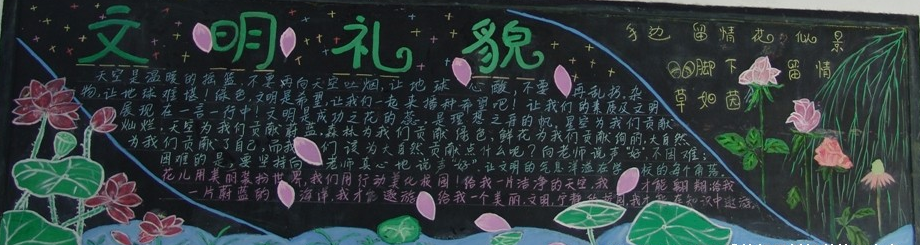 文明礼貌
天空是温暖的摇蓝,不要再向天空吐烟,让地球 心酸,不要 再乱扔杂
物,让地球难堪!绿色,文明是希望,让我们一起来播种希望吧!让我们的素质及文明
展现在一言一行中!文明是成功之花的蕊,是理想之舟的帆,星空为我们贡献
灿烂,天空为我们贡献蔚蓝,森林为我们贡献绿色,鲜花为我们贡献绚丽,大自然
为我们贡献了自己,而我们该为大自然贡献点什么呢?向老师说声"好"不困难;
困难的是要坚持向老师真心地说声"好"让文明的气息洋溢在学校的每个角落
花儿用美丽装扮世界,我们用行动美化校园!给我一片洁净的天空,我 才能翱翔,给我
一片蔚蓝的 海洋,我才能遨游 给我一个美丽,文明,宁静 校园,我才能在知识中遨游
身边留情花似景
脚下留情
草如茵